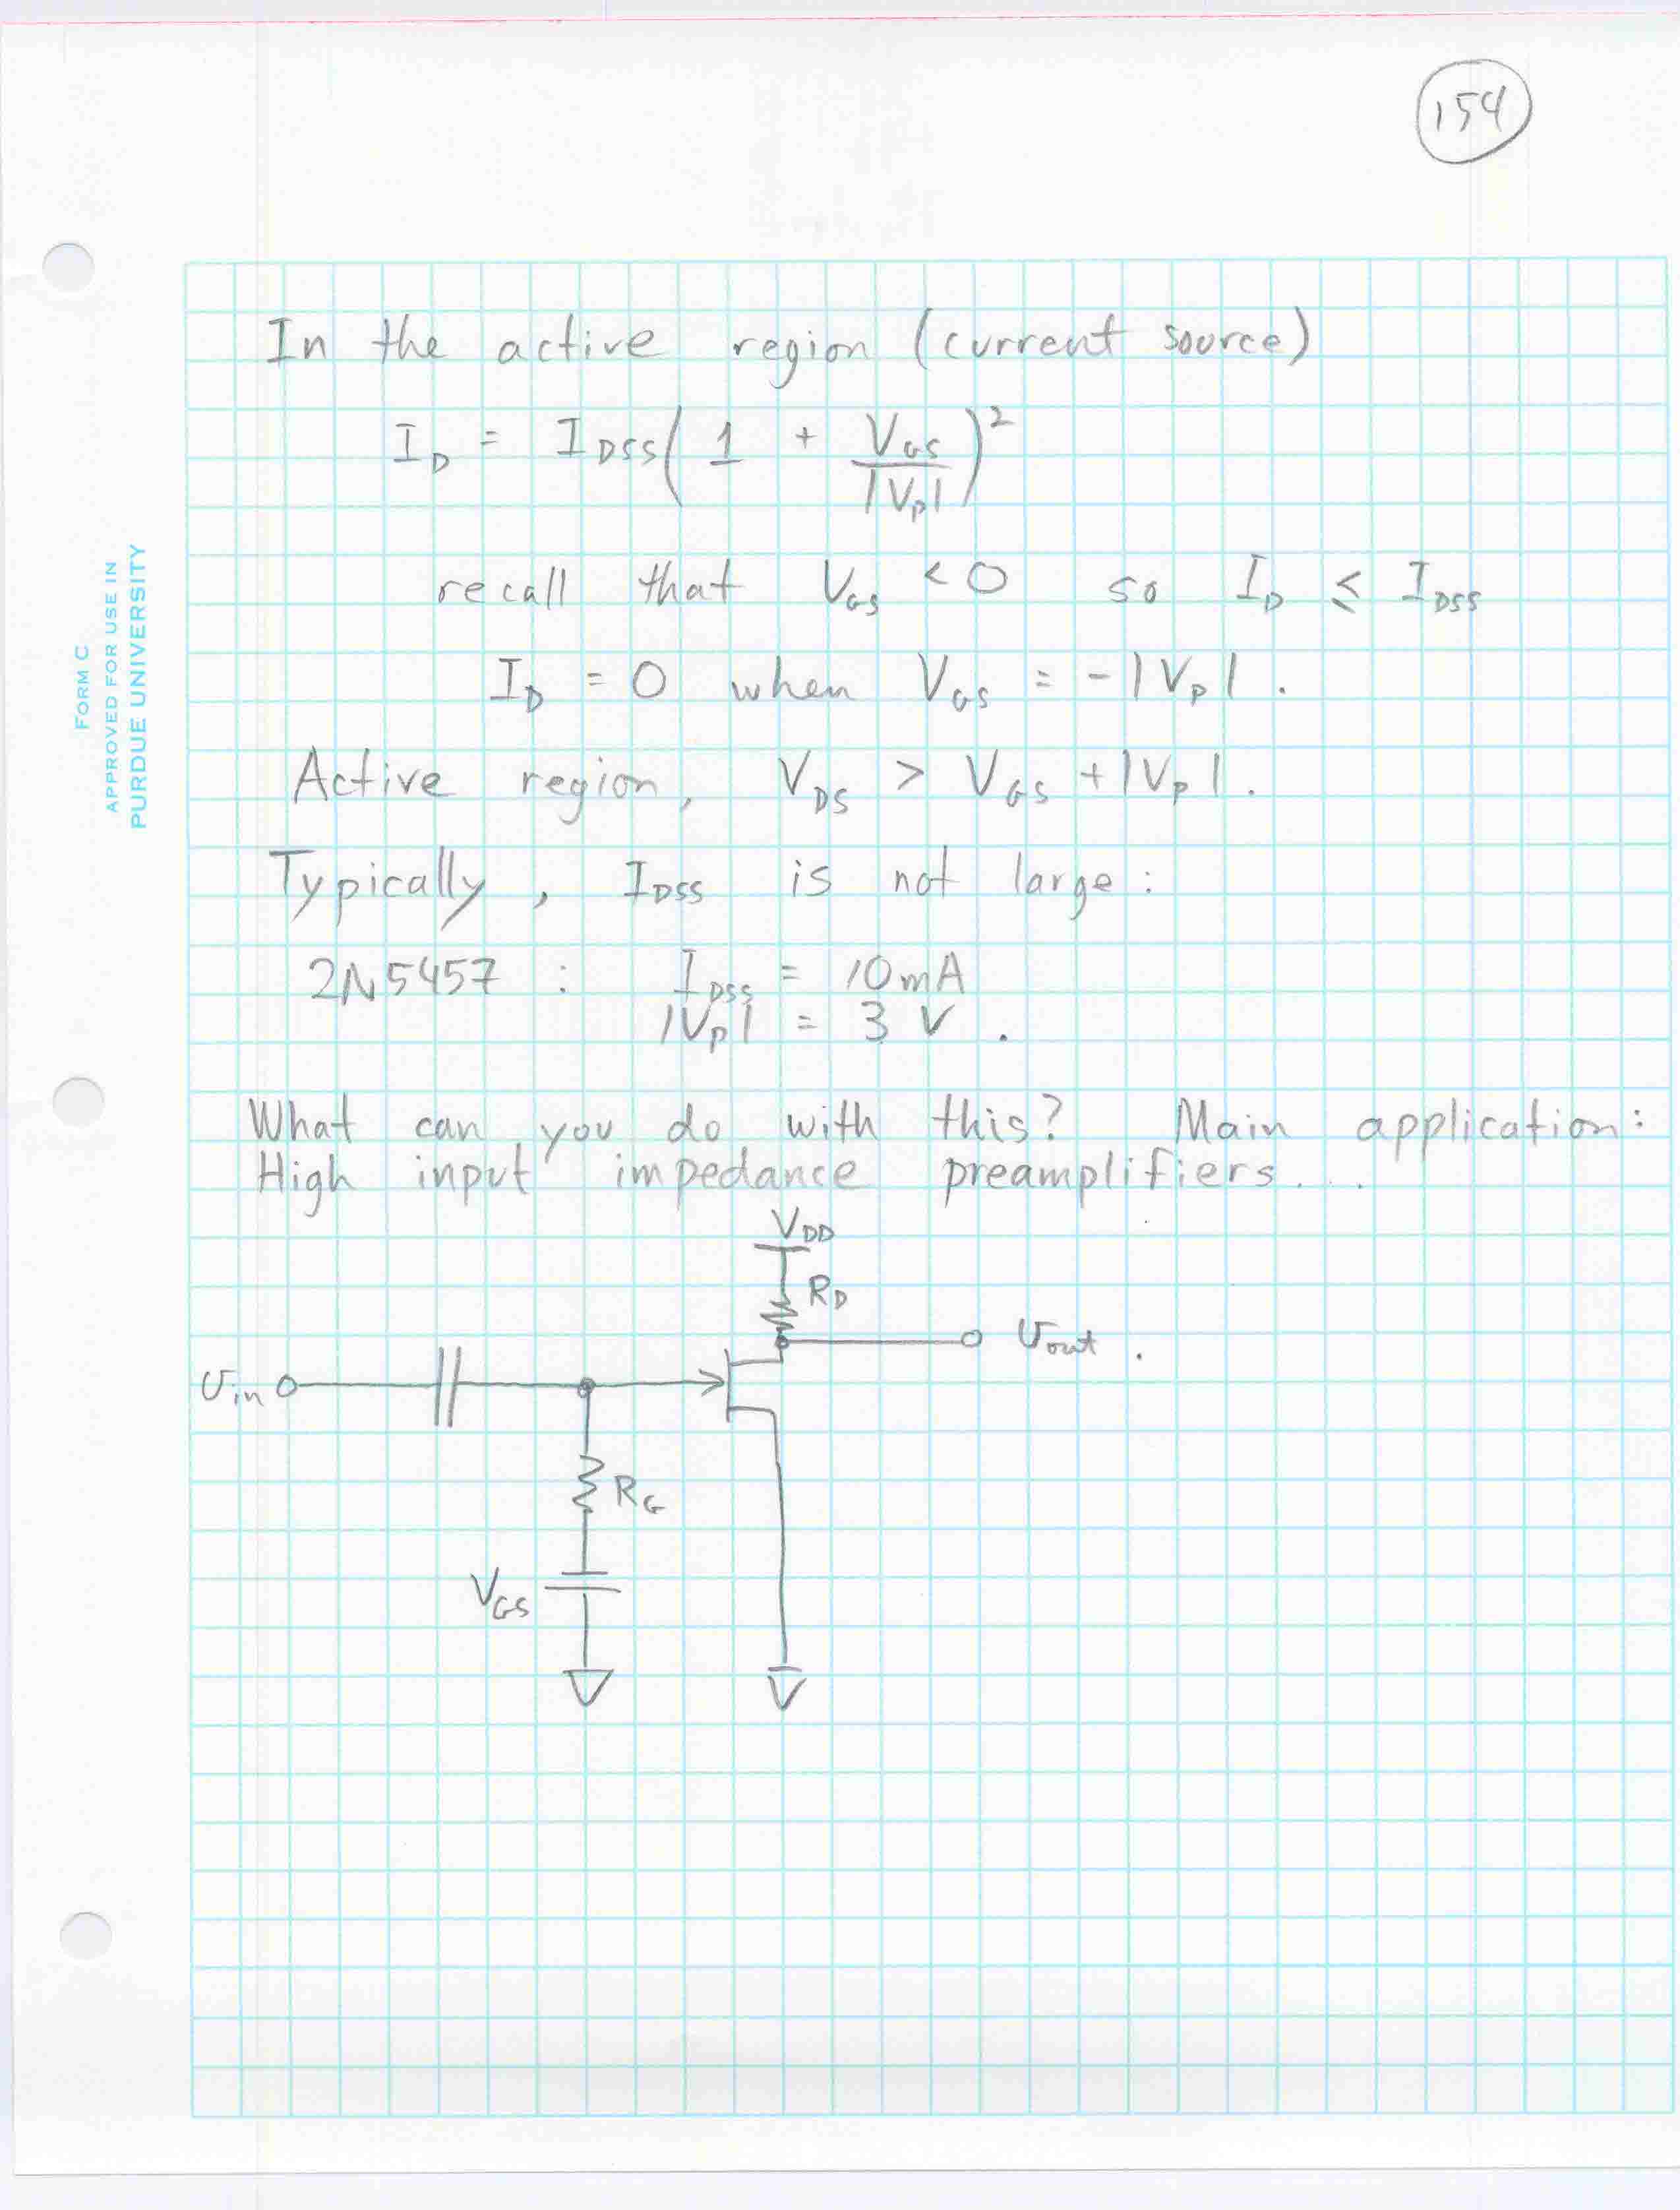 154
FORM C
APPROVED FOR USE IN
PURDUE UNIVERSITY
In the active region (current source)
I_D = I_DSS ( 1 + V_GS / |V_P| )²
recall that V_GS < 0 so I_D ≤ I_DSS
I_D = 0 when V_GS = - |V_P| .
Active region, V_DS > V_GS + |V_P| .
Typically, I_DSS is not large :
2N5457 : I_DSS = 10mA
|V_P| = 3 V .
What can you do with this? Main application:
High input impedance preamplifiers...
V_DD
R_D
v_out .
v_in
R_G
V_GS